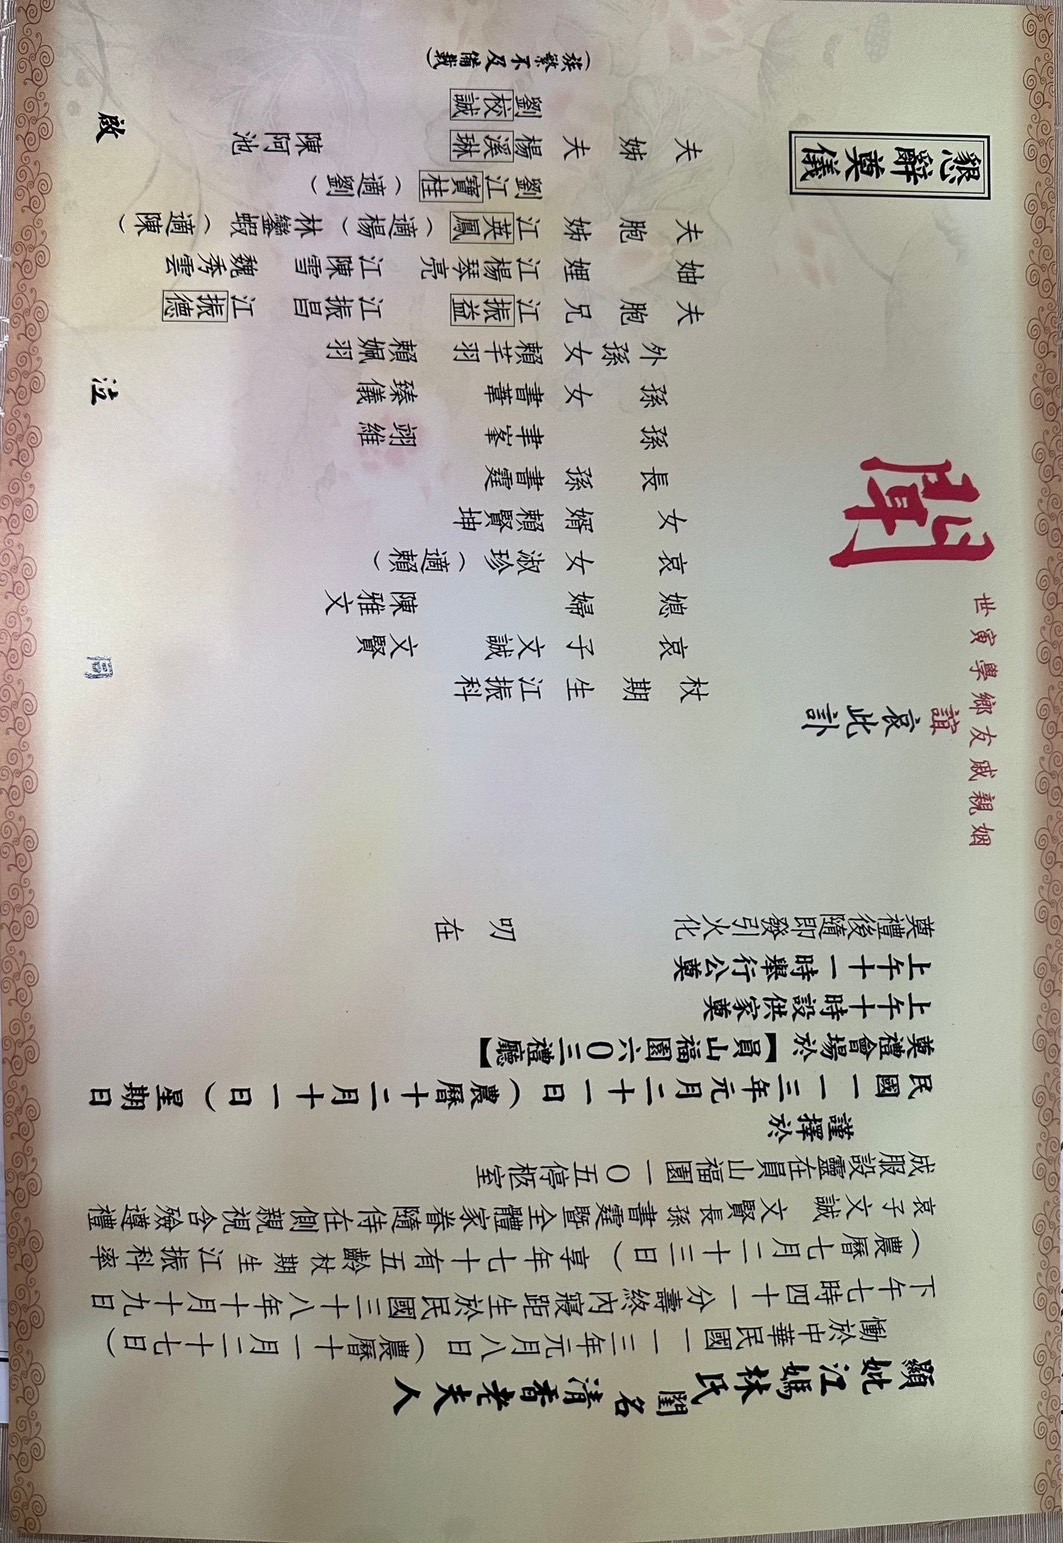 顯妣江媽林氏閨名清香老夫人
慟於中華民國一一三年元月八日（農曆十一月二十七日）
下午七時四十一分壽終內寢距生於民國三十八年十月十九日
（農曆七月二十三日）享年七十有五齡杖期生江振科率
哀子文誠文賢長孫書霆暨全體家眷隨侍在側親視含殮遵禮
成服設靈在員山福園一〇五停柩室
謹擇於
民國一一三年元月二十一日（農曆十二月十一日）星期日
奠禮會場於【員山福園六〇三禮廳】
上午十時設供家奠
上午十一時舉行公奠
奠禮後隨即發引火化 叨在
姻親戚友鄉學寅世誼
哀此訃
聞
懇辭奠儀
杖期生 江振科
哀子 文誠 文賢
媳婦 陳雅文
哀女 淑珍（適賴）
女婿 賴賢坤
長孫 書霆
孫 聿峯 翊維
孫女 書葦 臻儀
外孫女 賴芊羽 賴姵羽
夫胞兄 江振益 江振昌 江振德
妯娌 江楊琴亮 江陳雪 魏秀雲
夫胞姊 江英鳳（適楊）林鑾蝦（適陳）
劉江寶桂（適劉）
夫姊夫 楊溪琳 陳阿池
劉校誠
（族繁不及備載）
同泣啟